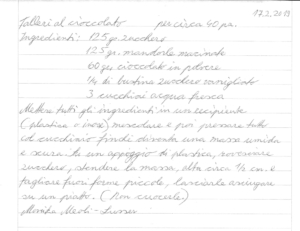 17.2.2011
Talleri al cioccolato per circa 40 pz.
Ingredienti: 125 gr zucchero
125 gr mandorle macinate
60 gr cioccolato in polvere
1/2 di bustina zucchero vanigliato
3 cucchiai acqua fresca
Mettere tutti gli ingredienti in un recipiente
(plastica o inox) mescolare e poi pressare tutto
col cucchiaio finché diventa una massa umida
e scura. Su un appoggio di plastica, rovesciare
zucchero, stendere la massa, alta circa 1/2 cm. e
tagliare fuori forme piccole, lasciarle asciugare
su un piatto. (Non cuocerle)
Monika